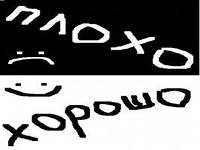 плохо
хорошо